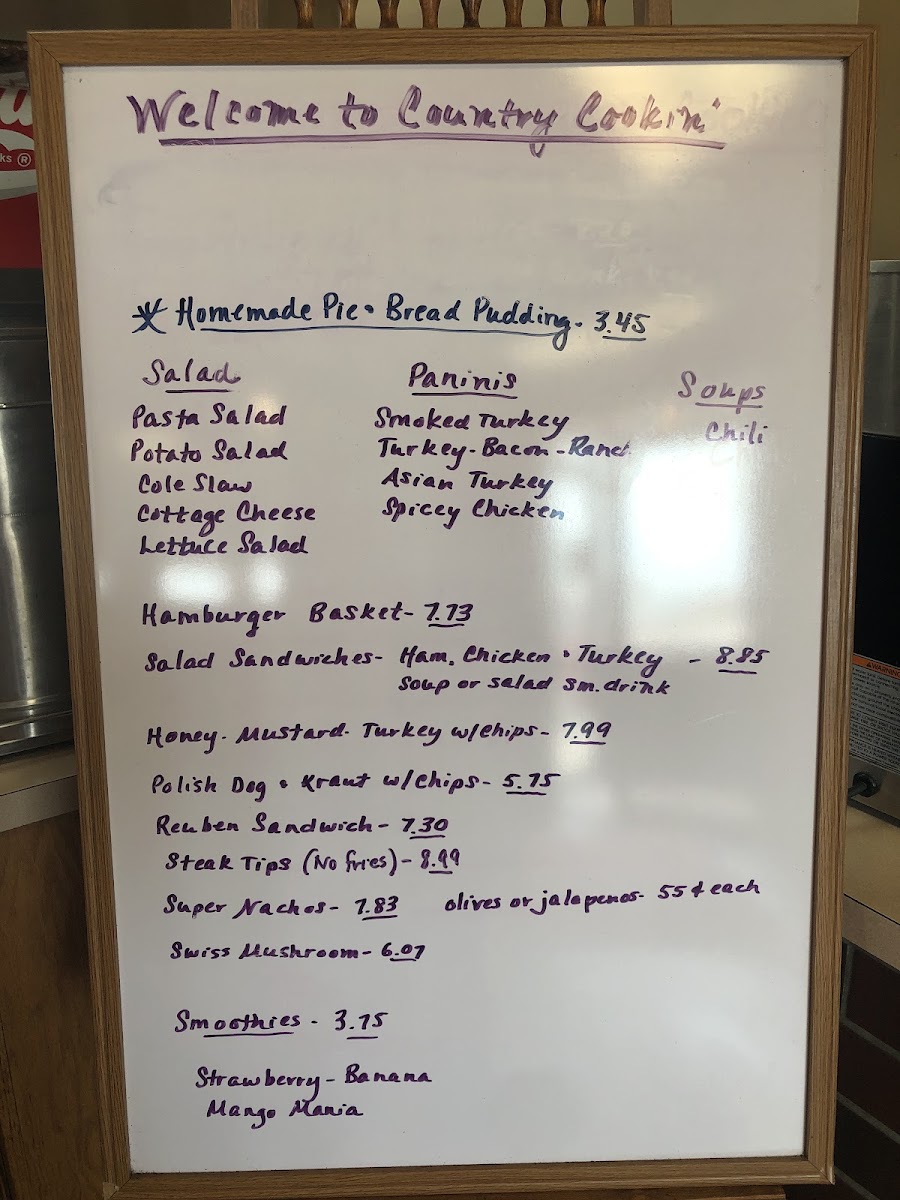 Welcome to Country Cookin'
Homemade Pie • Bread Pudding - 3.45
Salad
Pasta Salad
Potato Salad
Cole Slaw
Cottage Cheese
Lettuce Salad
Paninis
Smoked Turkey
Turkey - Bacon - Ranch
Asian Turkey
Spicey Chicken
Soups
Chili
Hamburger Basket - 7.73
Salad Sandwiches - Ham, Chicken • Turkey - 8.85
soup or salad sm. drink
Honey - Mustard - Turkey w/chips - 7.99
Polish Dog • Kraut w/chips - 5.75
Reuben Sandwich - 7.30
Steak Tips (No fries) - 8.99
Super Nachos - 7.83 olives or jalapenos - 55¢ each
Swiss Mushroom - 6.07
Smoothies - 3.75
Strawberry - Banana
Mango Mania
ks ®
WARNING